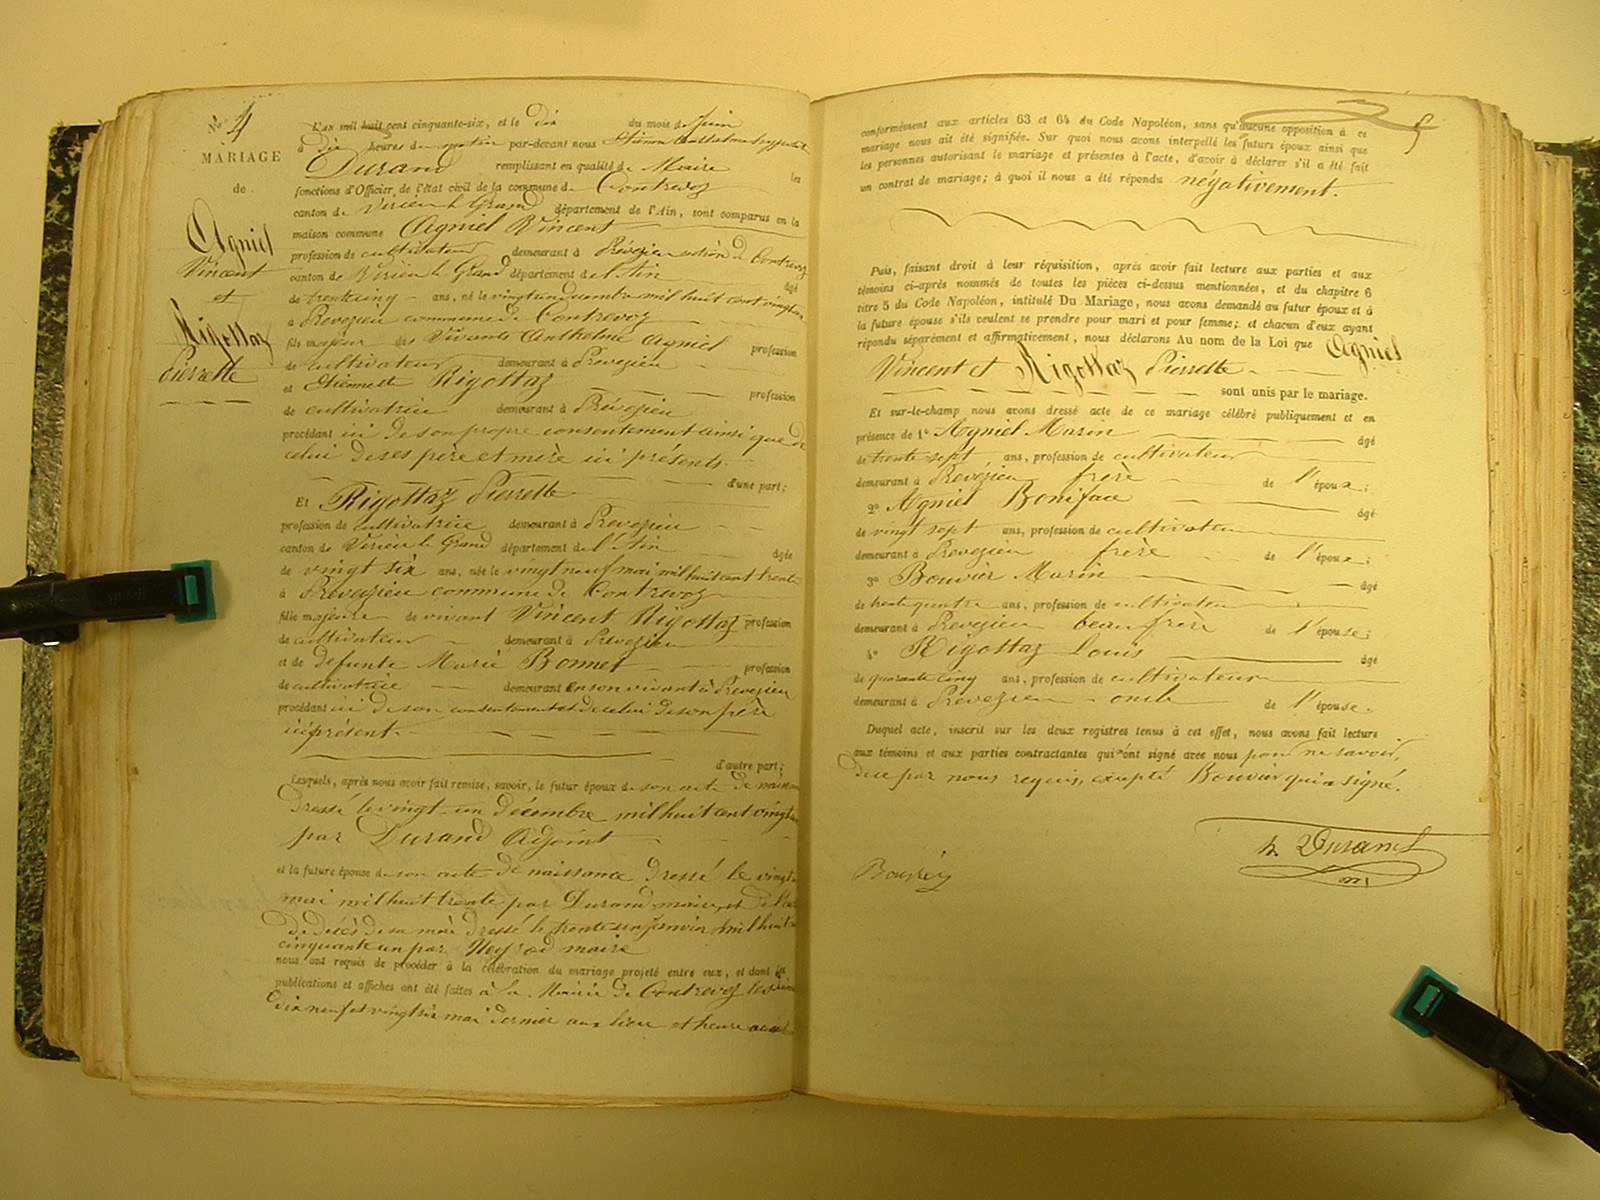 No. 4
MARIAGE
de
Agniel
Vincent
et
Rigottaz
Pierrette
L'an mil huit cent cinquante-six, et le dix du mois de Juin
à dix heures du matin par-devant nous
Durand remplissant en qualité de Maire les
fonctions d'Officier de l'état civil de la commune de Contrevoz
canton de Virieu le Grand département de l'Ain, sont comparus en la
maison commune Agniel Vincent
profession de cultivateur demeurant à Prévezieu section de Contrevoz
canton de Virieu le Grand département de l'Ain âgé
de trentcinq ans, né le vingt un décembre mil huit cent vingt
à Prevezieu commune de Contrevoz
fils majeur des vivants Anthelme Agniel profession
de cultivateur demeurant à Prevezieu
et Etiennette Rigottaz profession
de cultivatrice demeurant à Prévezieu
procédant ici de son propre consentement ainsi que de
celui de ses père et mère ici présents
d'une part;
Et Rigottaz Pierrette
profession de cultivatrice demeurant à Prevezieu
canton de Virieu le Grand département de l'Ain âgée
de vingt six ans, née le vingt neuf mai mil huit cent trente
à Prevezieu commune de Contrevoz
fille majeure de vivant Vincent Rigottaz profession
de cultivateur demeurant à Prevezieu
et de defunte Marie Bonnet profession
de cultivatrice demeurant en son vivant à Prevezieu
procédant ici de son consentement et de celui de son père
ici présent.
d'autre part;
Lesquels, après nous avoir fait remise, savoir, le futur époux de son acte de naissance
dressé le vingt-un décembre mil huit cent vingt
par Durand Adjoint
et la future épouse de son acte de naissance dressé le vingt
mai mil huit trente par Durand maire, et de l'acte
de décès de sa mère dressé le trente un janvier mil huit
cinquante un par Neyrod maire
nous ont requis de procéder à la célébration du mariage projeté entre eux, et dont les
publications et affiches ont été faites à la Mairie de Contrevoz les
dix neuf et vingt six mai dernier aux lieu et heure
conformément aux articles 63 et 64 du Code Napoléon, sans qu'aucune opposition à ce
mariage nous ait été signifiée. Sur quoi nous avons interpellé les futurs époux ainsi que
les personnes autorisant le mariage et présentes à l'acte, d'avoir à déclarer s'il a été fait
un contrat de mariage; à quoi il nous a été répondu négativement.
Puis, faisant droit à leur réquisition, après avoir fait lecture aux parties et aux
témoins ci-après nommés de toutes les pièces ci-dessus mentionnées, et du chapitre 6
titre 5 du Code Napoléon, intitulé Du Mariage, nous avons demandé au futur époux et à
la future épouse s'ils veulent se prendre pour mari et pour femme; et chacun d'eux ayant
répondu séparément et affirmativement, nous déclarons Au nom de la Loi que Agniel
Vincent et Rigottaz Pierrette
sont unis par le mariage.
Et sur-le-champ nous avons dressé acte de ce mariage célébré publiquement et en
présence de 1° Agniel Marin âgé
de trente sept ans, profession de cultivateur
demeurant à Prevézieu frère de l'époux;
2° Agniel Boniface âgé
de vingt sept ans, profession de cultivateur
demeurant à Prevezieu frère de l'époux;
3° Bouvier Marin âgé
de trente quatre ans, profession de cultivateur
demeurant à Prevezieu beau frère de l'épouse;
4° Rigottaz Louis âgé
de quarante cinq ans, profession de cultivateur
demeurant à Prevezieu oncle de l'épouse.
Duquel acte, inscrit sur les deux registres tenus à cet effet, nous avons fait lecture
aux témoins et aux parties contractantes qui n'ont signé avec nous pour ne savoir,
de ce par nous requis, excepté Bouvier qui a signé.
Durand
Bouvier